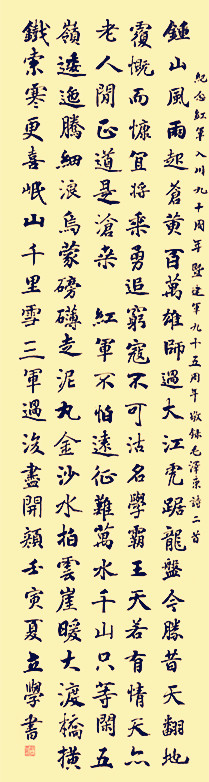 紀念紅軍入川九十周年暨建軍九十五周年敬錄毛澤東詩二首
鍾山風雨起蒼黃百萬雄師過大江虎踞龍盤今勝昔天翻地
覆慨而慷宜將乘勇追窮寇不可沽名學霸王天若有情天亦
老人間正道是滄桒 紅軍不怕遠征難萬水千山只等閑五
嶺逶迤騰細浪烏蒙磅礴走泥丸金沙水拍雲崖暖大渡橋橫
鐵索寒更喜岷山千里雪三軍過後盡開顏壬寅夏立學書